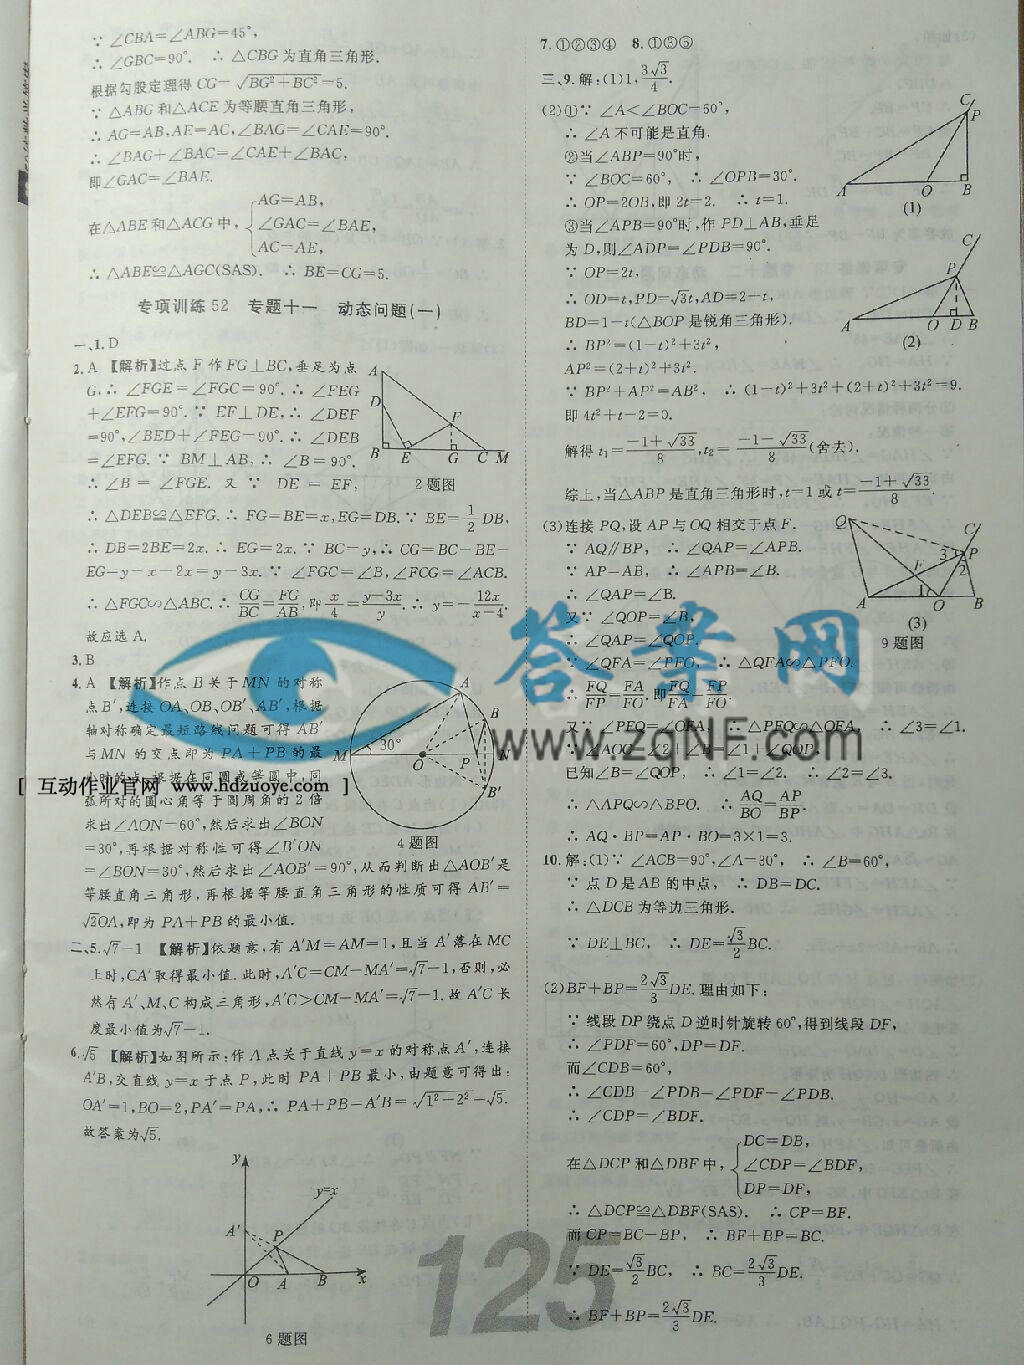 ∵ ∠CBA=∠ABG=45°,
∴ ∠GBC=90°. ∴ △CBG为直角三角形.
根据勾股定理得 CG=√(BG²+BC²)=5.
∵ △ABG和△ACE为等腰直角三角形,
∴ AG=AB,AE=AC,∠BAG=∠CAE=90°.
∴ ∠BAG+∠BAC=∠CAE+∠BAC,
即∠GAC=∠BAE.
在△ABE和△ACG中, { AG=AB, ∠GAC=∠BAE, AC=AE,
∴ △ABE≌△AGC(SAS). ∴ BE=CG=5.
专项训练52 专题十一 动态问题(一)
一、1. D
2. A 【解析】过点F作FG⊥BC,垂足为点
G,∴ ∠FGE=∠FGC=90°.∴ ∠FEG
+∠EFG=90°.∵ EF⊥DE,∴ ∠DEF
=90°,∠BED+∠FEG=90°.∴ ∠DEB
=∠EFG.∵ BM⊥AB,∴ ∠B=90°.
∴ ∠B = ∠FGE. 又 ∵ DE = EF,
∴ △DEB≌△EFG.∴ FG=BE=x,EG=DB.∵ BE=1/2 DB,
∴ DB=2BE=2x.∴ EG=2x.∵ BC=y,∴ CG=BC-BE-
EG=y-x-2x=y-3x.∵ ∠FGC=∠B,∠FCG=∠ACB.
∴ △FGC∽△ABC.∴ CG/BC=FG/AB,即x/4=(y-3x)/y.∴ y=-12x/(x-4).
故应选A.
A
D
F
B E G C M
2题图
3. B
4. A 【解析】作点B关于MN的对称
点B′,连接OA、OB、OB′、AB′,根据
轴对称确定最短路线问题可得AB′
与MN的交点即为PA+PB的最
小时的点,根据在同圆或等圆中,同
弧所对的圆心角等于圆周角的2倍
求出∠AON=60°,然后求出∠BON
=30°,再根据对称性可得∠B′ON
=∠BON=30°,然后求出∠AOB′=90°,从而判断出△AOB′是
等腰直角三角形,再根据等腰直角三角形的性质可得AB′=
√2OA,即为PA+PB的最小值.
A
B
M 30° O P N
B′
4题图
二、5. √7-1 【解析】依题意,有A′M=AM=1,且当A′落在MC
上时,CA′取得最小值.此时,A′C=CM-MA′=√7-1,否则,必
然有A′、M、C构成三角形,A′C>CM-MA′=√7-1.故A′C长
度最小值为√7-1.
6. √5 【解析】如图所示:作A点关于直线y=x的对称点A′,连接
A′B,交直线y=x于点P,此时PA+PB最小,由题意可得出:
OA′=1,BO=2,PA′=PA,∴ PA+PB=A′B=√(1²+2²)=√5.
故答案为√5.
y
y=x
A′ P
O A B x
6题图
7. ①②③④ 8. ①⑤⑥
三、9. 解:(1)1, 3√3/4.
(2)①∵ ∠A<∠BOC=60°,
∴ ∠A不可能是直角.
②当∠ABP=90°时,
∵ ∠BOC=60°, ∴ ∠OPB=30°.
∴ OP=2OB,即2t=2. ∴ t=1.
③当∠APB=90°时,作PD⊥AB,垂足
为D,则∠ADP=∠PDB=90°.
∵ OP=2t,
∴ OD=t,PD=√3t,AD=2+t,
BD=1-t(△BOP是锐角三角形).
∴ BP²=(1-t)²+3t²,
AP²=(2+t)²+3t².
∵ BP²+AP²=AB², ∴ (1-t)²+3t²+(2+t)²+3t²=9.
即4t²+t-2=0.
解得t₁=(-1+√33)/8,t₂=(-1-√33)/8(舍去).
综上,当△ABP是直角三角形时,t=1或t=(-1+√33)/8.
C
P
A O B
(1)
C
P
A O D B
(2)
(3)连接PQ,设AP与OQ相交于点F.
∵ AQ∥BP, ∴ ∠QAP=∠APB.
∵ AP=AB, ∴ ∠APB=∠B.
∴ ∠QAP=∠B.
又∵ ∠QOP=∠B,
∴ ∠QAP=∠QOP.
∵ ∠QFA=∠PFO, ∴ △QFA∽△PFO.
∴ FQ/FP=FA/FO.即FQ/FA=FP/FO.
又∵ ∠PFQ=∠OFA, ∴ △PFQ∽△OFA. ∴ ∠3=∠1.
∵ ∠AOC=∠2+∠B=∠1+∠QOP.
已知∠B=∠QOP, ∴ ∠1=∠2. ∴ ∠2=∠3.
∴ △APQ∽△BPO. ∴ AQ/BO=AP/BP.
∴ AQ·BP=AP·BO=3×1=3.
Q
C
3 P
F 2
1
A O B
(3)
9题图
10. 解:(1)∵ ∠ACB=90°,∠A=30°, ∴ ∠B=60°,
∵ 点D是AB的中点, ∴ DB=DC.
∴ △DCB为等边三角形.
∵ DE⊥BC, ∴ DE=√3/2 BC.
(2)BF+BP=2√3/3 DE.理由如下:
∵ 线段DP绕点D逆时针旋转60°,得到线段DF,
∴ ∠PDF=60°,DP=DF.
而∠CDB=60°,
∴ ∠CDB-∠PDB=∠PDF-∠PDB.
∴ ∠CDP=∠BDF.
在△DCP和△DBF中, { DC=DB, ∠CDP=∠BDF, DP=DF,
∴ △DCP≌△DBF(SAS). ∴ CP=BF.
而CP=BC-BP, ∴ BF+BP=BC.
∵ DE=√3/2 BC, ∴ BC=2√3/3 DE.
∴ BF+BP=2√3/3 DE.
125
答案网
www.zqNF.com
[ 互动作业官网 www.hdzuoye.com ]